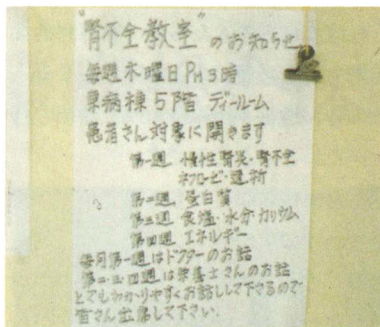 "腎不全教室"のお知らせ
毎週木曜日PM3時
東病棟5階 ディールーム
患者さん対象に開きます
第一週 慢性腎炎・腎不全
ネフローゼ・透析
第二週 蛋白質
第三週 食塩・水分・カリウム
第四週 エネルギー
毎月第一週はドクターのお話
第二・三・四週は栄養士さんのお話
とてもわかりやすくお話しして下さるので
皆さん出席して下さい.